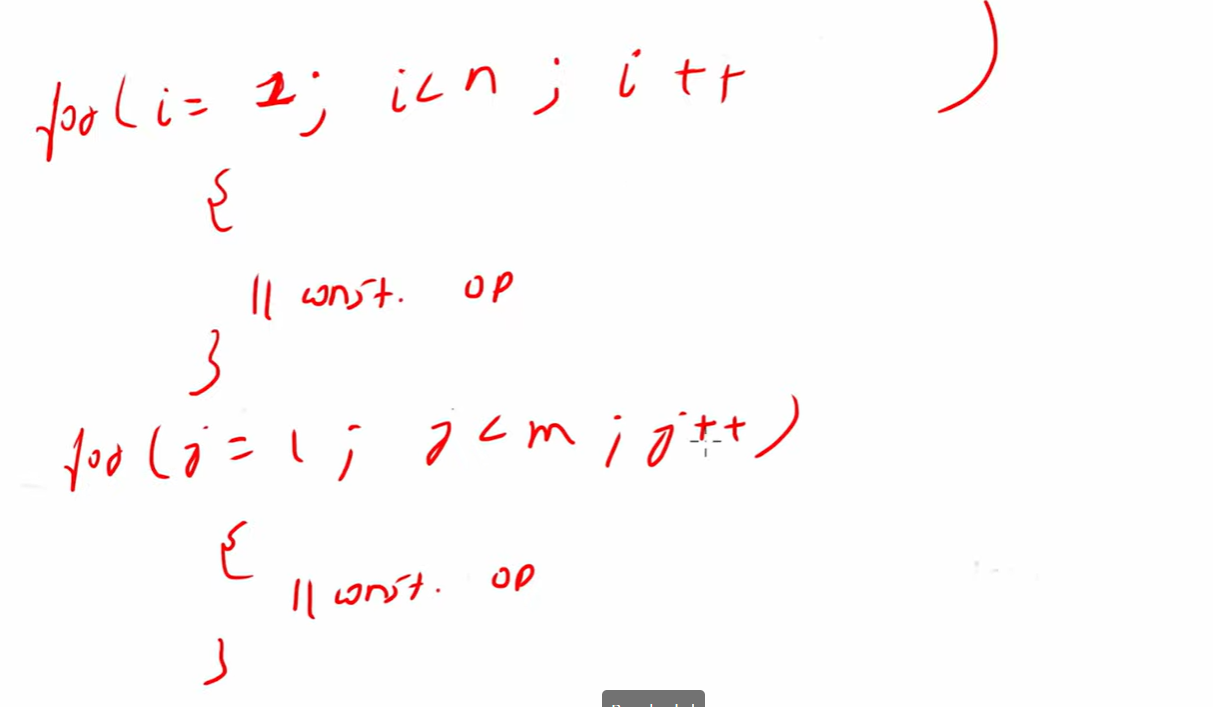 for(i= 1; i<n ; i ++ )
{
// const. op
}
for(j=1; j<m ; j++)
{
// const. op
}